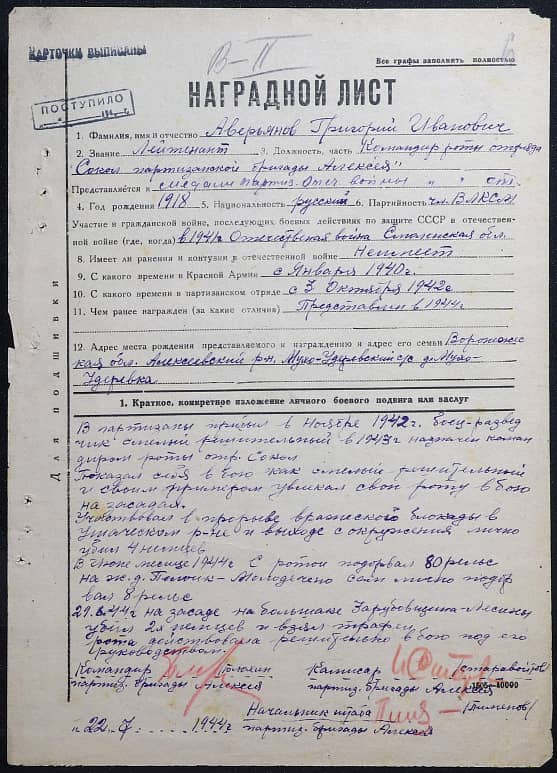 КАРТОЧКИ ВЫПИСАНЫ
В-II
6
Все графы заполнять полностью
ПОСТУПИЛО
НАГРАДНОЙ ЛИСТ
1. Фамилия, имя и отчество Аверьянов Григорий Иванович
2. Звание Лейтенант 3. Должность, часть Командир роты отряда
"Сокол" партизанской бригады Алексея"
Представляется к медали Партиз. Отеч. войны " " ст.
4. Год рождения 1918 5. Национальность русский 6. Партийность чл. ВЛКСМ
Участие в гражданской войне, последующих боевых действиях по защите СССР и отечествен-
ной войне (где, когда) в 1941г Отечественая война Смоленская обл.
8. Имеет ли ранения и контузии в отечественной войне Неимеет
9. С какого времени в Красной Армии с Января 1940г.
10. С какого времени в партизанском отряде с 3 Октября 1942г
11. Чем ранее награжден (за какие отличия) Представлен в 1944г
12. Адрес места рождения представляемого к награждению и адрес его семьи Воронеж-
ская обл. Алексеевский р-н. Мухо-Удеревский с/с д. Мухо-
Удеревка
Для подшивки
1. Краткое, конкретное изложение личного боевого подвига или заслуг
В партизаны прибыл в Ноябре 1942г. боец-развед
чик смелый решительный в 1943г назначен коман
диром роты отр. Сокол
Показал себя в бою как смелый решительный
и своим примером увлекал свою роту в бою
на засадах.
Участвовал в прорыве вражеского блокады в
Ушачском р-не и выходе с окружения лично
убил 4 немцев
В Июне месяце 1944г С ротой подорвал 80 рельс
на ж.д. Полоцк-Молодечено сам лично подор
вал 8 рельс
29.6.44г на засаде на большаке Зарубовщина-
убил 2х немцев и взял трафеи
рота действовала решительно в бою под его
руководством.
Командир Комисар
партиз. бригады Алексея партиз. бригады Алексея
Начальник штаба /Пименов/
"22. 7 1944г партиз. бригады Алексея